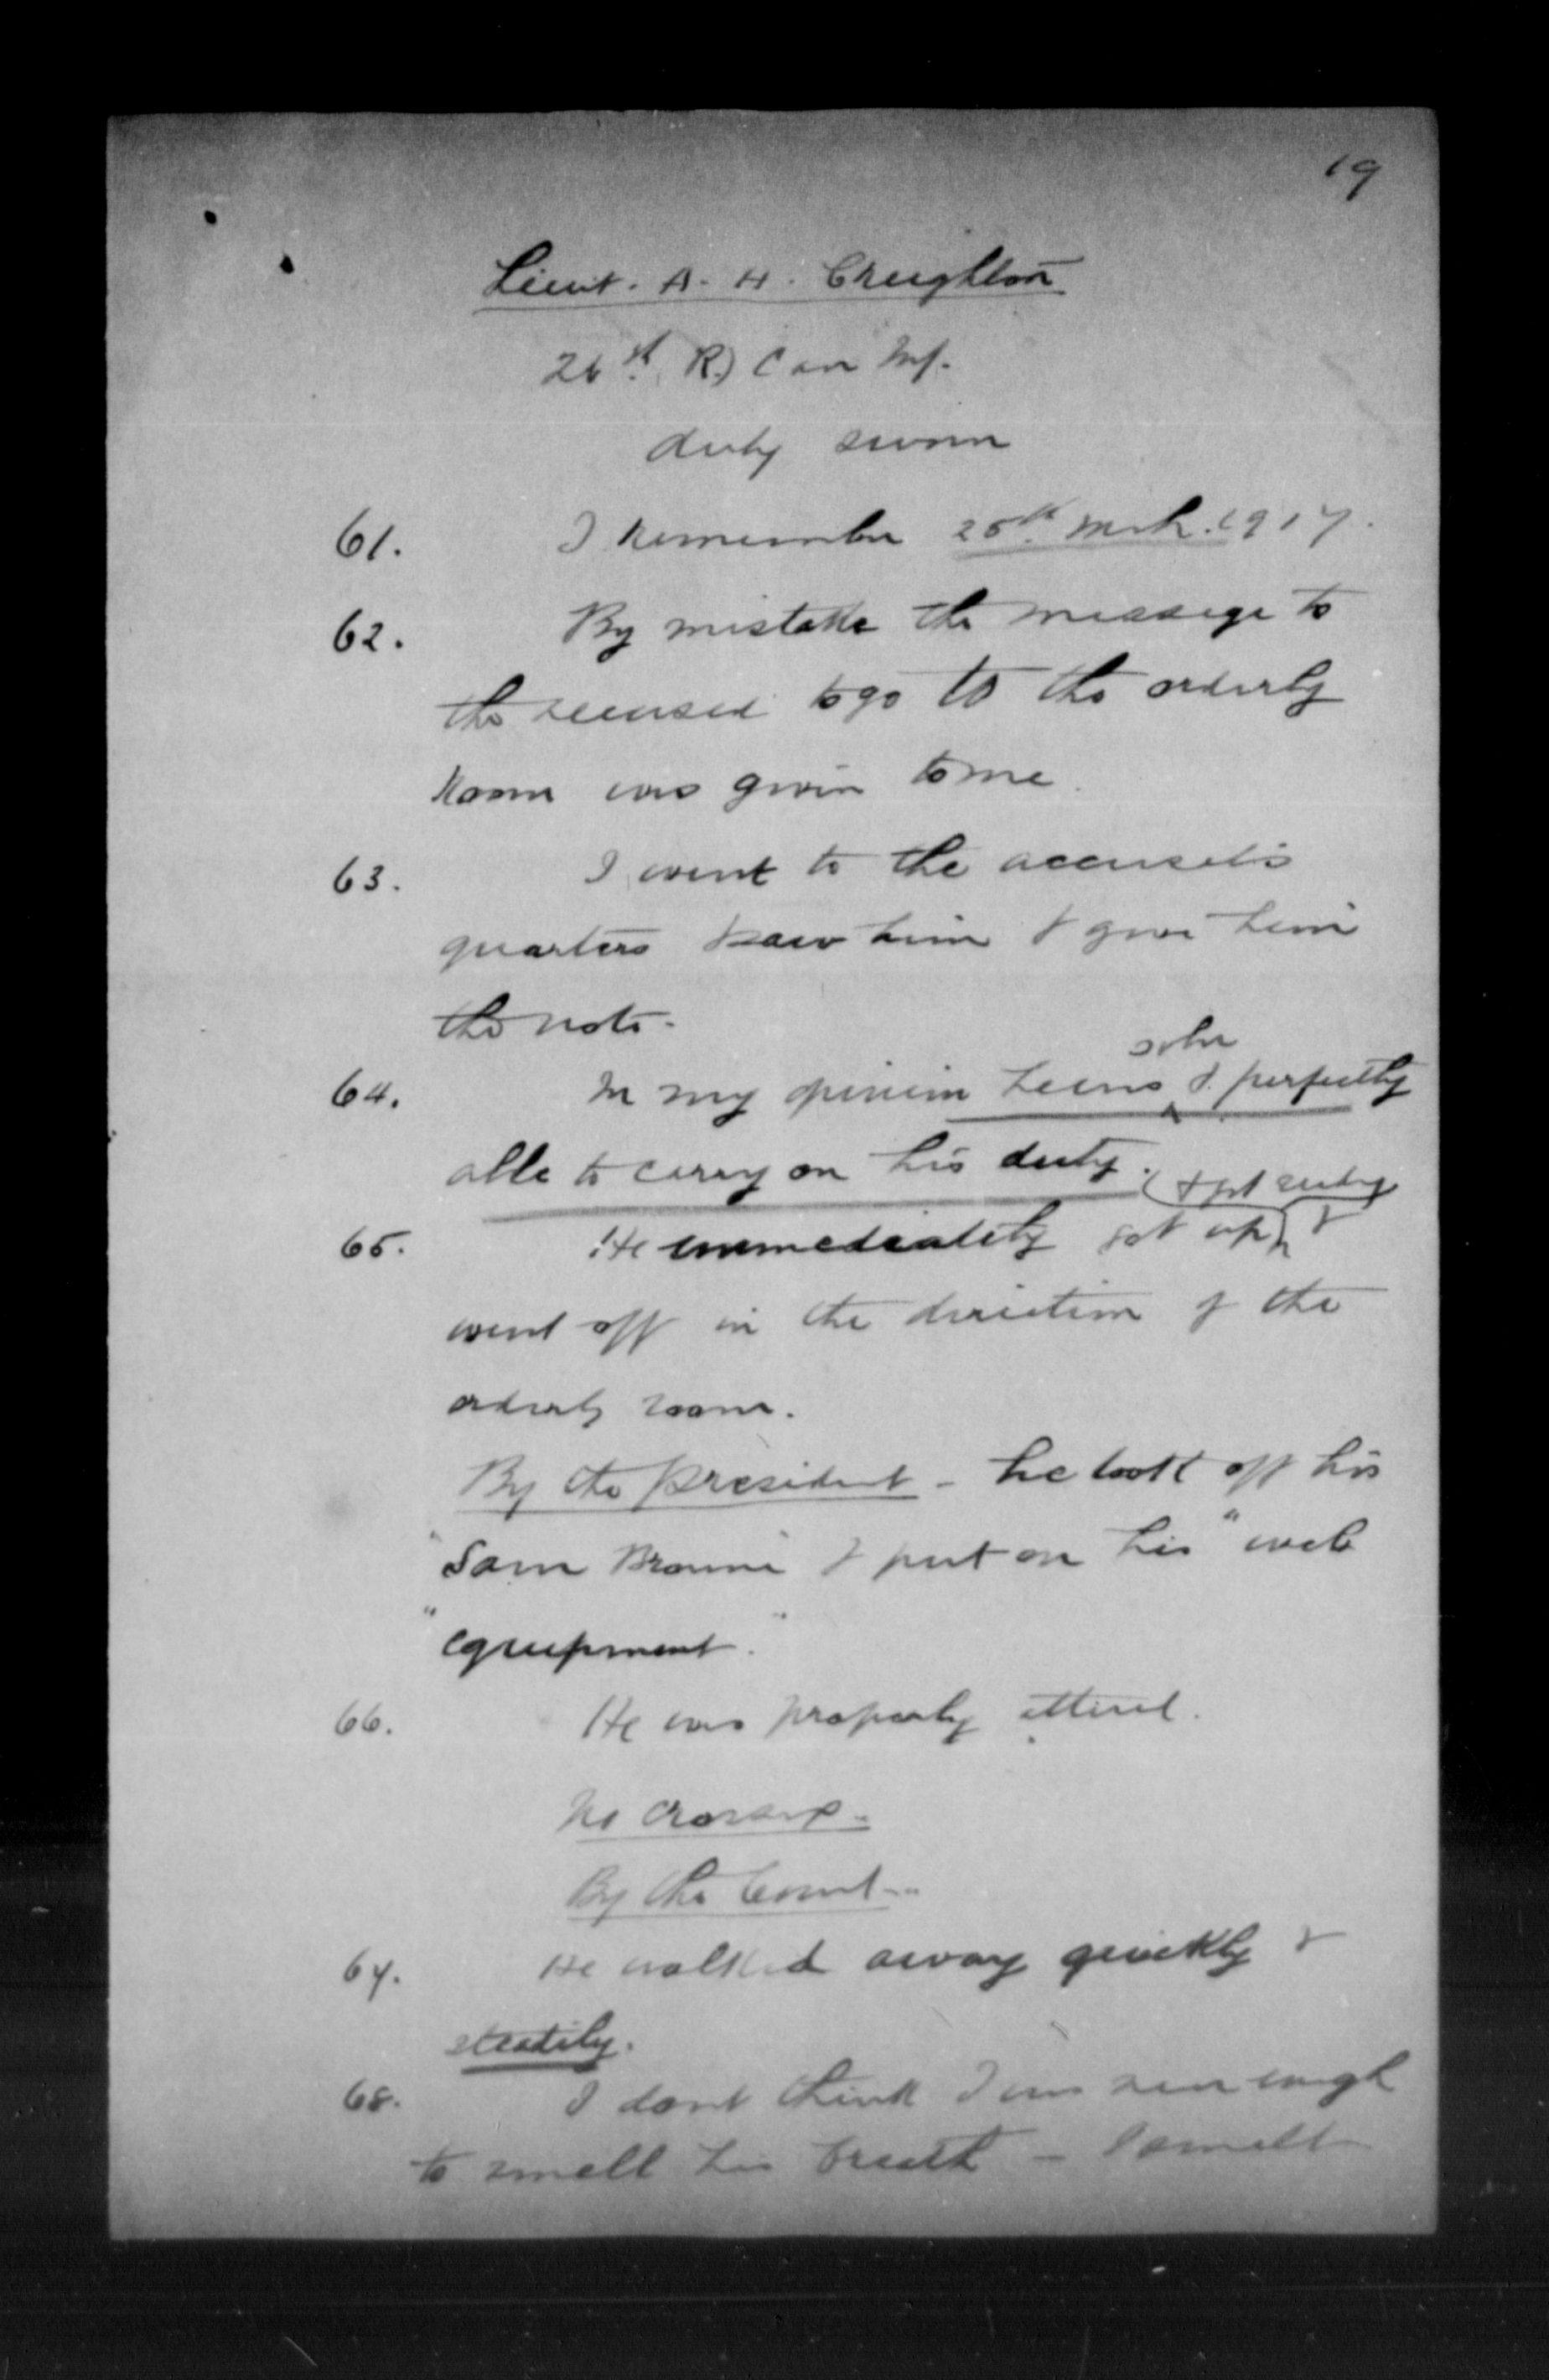 19
Lieut. A. H. Creighton
26th (R) Can Inf.
duly sworn
61. I remember 25th Mch. 1917.
62. By mistake the message to
the accused to go to the orderly
room was given to me.
63. I went to the accused's
quarters & saw him & gave him
the note.
sober
64. In my opinion he was & perfectly
able to carry on his duty.
(& got ready
65. He immediately got up) &
went off in the direction of the
orderly room.
By the President - he took off his
"Sam Browne" & put on his "web
"equipment."
66. He was properly attired.
No Cross ex -
By the Court -
67. He walked away quickly &
steadily.
68. I dont think I was near enough
to smell his breath - I smelt